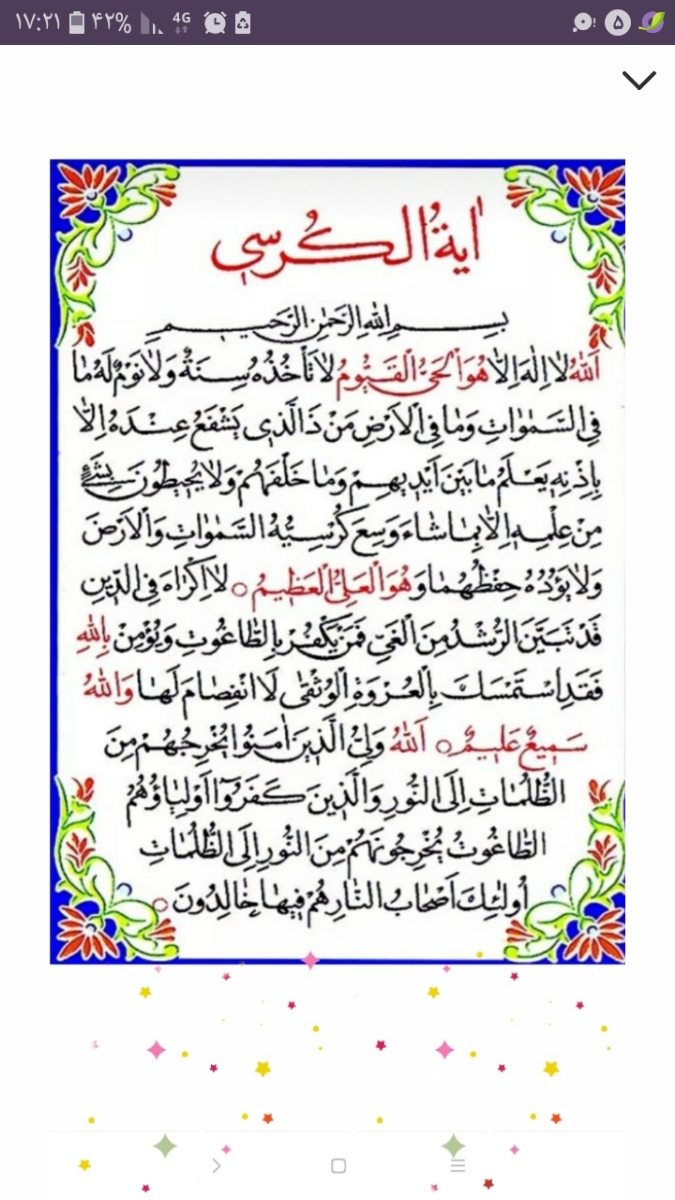 ۱۷:۲۱ ۴۲% 4G ۵
اٰیةُ الکُرسی
بِسمِ اللهِ الرَّحمٰنِ الرَّحیمِ
اَللهُ لا اِلٰهَ اِلّا هُوَ الْحَیُّ الْقَیُّومُ لا تَأْخُذُهُ سِنَةٌ وَلا نَوْمٌ لَهُ مٰا
فِی السَّمٰوٰاتِ وَمٰا فِی الْاَرْضِ مَنْ ذَا الَّذی یَشْفَعُ عِنْدَهُ اِلّا
بِاِذْنِهِ یَعْلَمُ مٰا بَیْنَ اَیْدیهِمْ وَمٰا خَلْفَهُمْ وَلا یُحیطُونَ بِشَیْءٍ
مِنْ عِلْمِهِ اِلّا بِمٰا شٰاءَ وَسِعَ کُرْسِیُّهُ السَّمٰوٰاتِ وَالْاَرْضَ
وَلا یَؤُدُهُ حِفْظُهُمٰا وَهُوَ الْعَلِیُّ الْعَظیمُ ○ لا اِکْرٰاهَ فِی الدّینِ
قَدْ تَبَیَّنَ الرُّشْدُ مِنَ الْغَیِّ فَمَنْ یَکْفُرْ بِالطّٰاغُوتِ وَیُؤْمِنْ بِاللهِ
فَقَدِ اسْتَمْسَكَ بِالْعُرْوَةِ الْوُثْقٰی لَا انْفِصٰامَ لَهٰا وَاللهُ
سَمیعٌ عَلیمٌ ○ اَللهُ وَلِیُّ الَّذینَ اٰمَنُوا یُخْرِجُهُمْ مِنَ
الظُّلُمٰاتِ اِلَی النُّورِ وَالَّذینَ کَفَرُوا اَوْلِیٰاؤُهُمُ
الطّٰاغُوتُ یُخْرِجُونَهُمْ مِنَ النُّورِ اِلَی الظُّلُمٰاتِ
اُولٰئِكَ اَصْحٰابُ النّٰارِ هُمْ فیهٰا خٰالِدُونَ ○